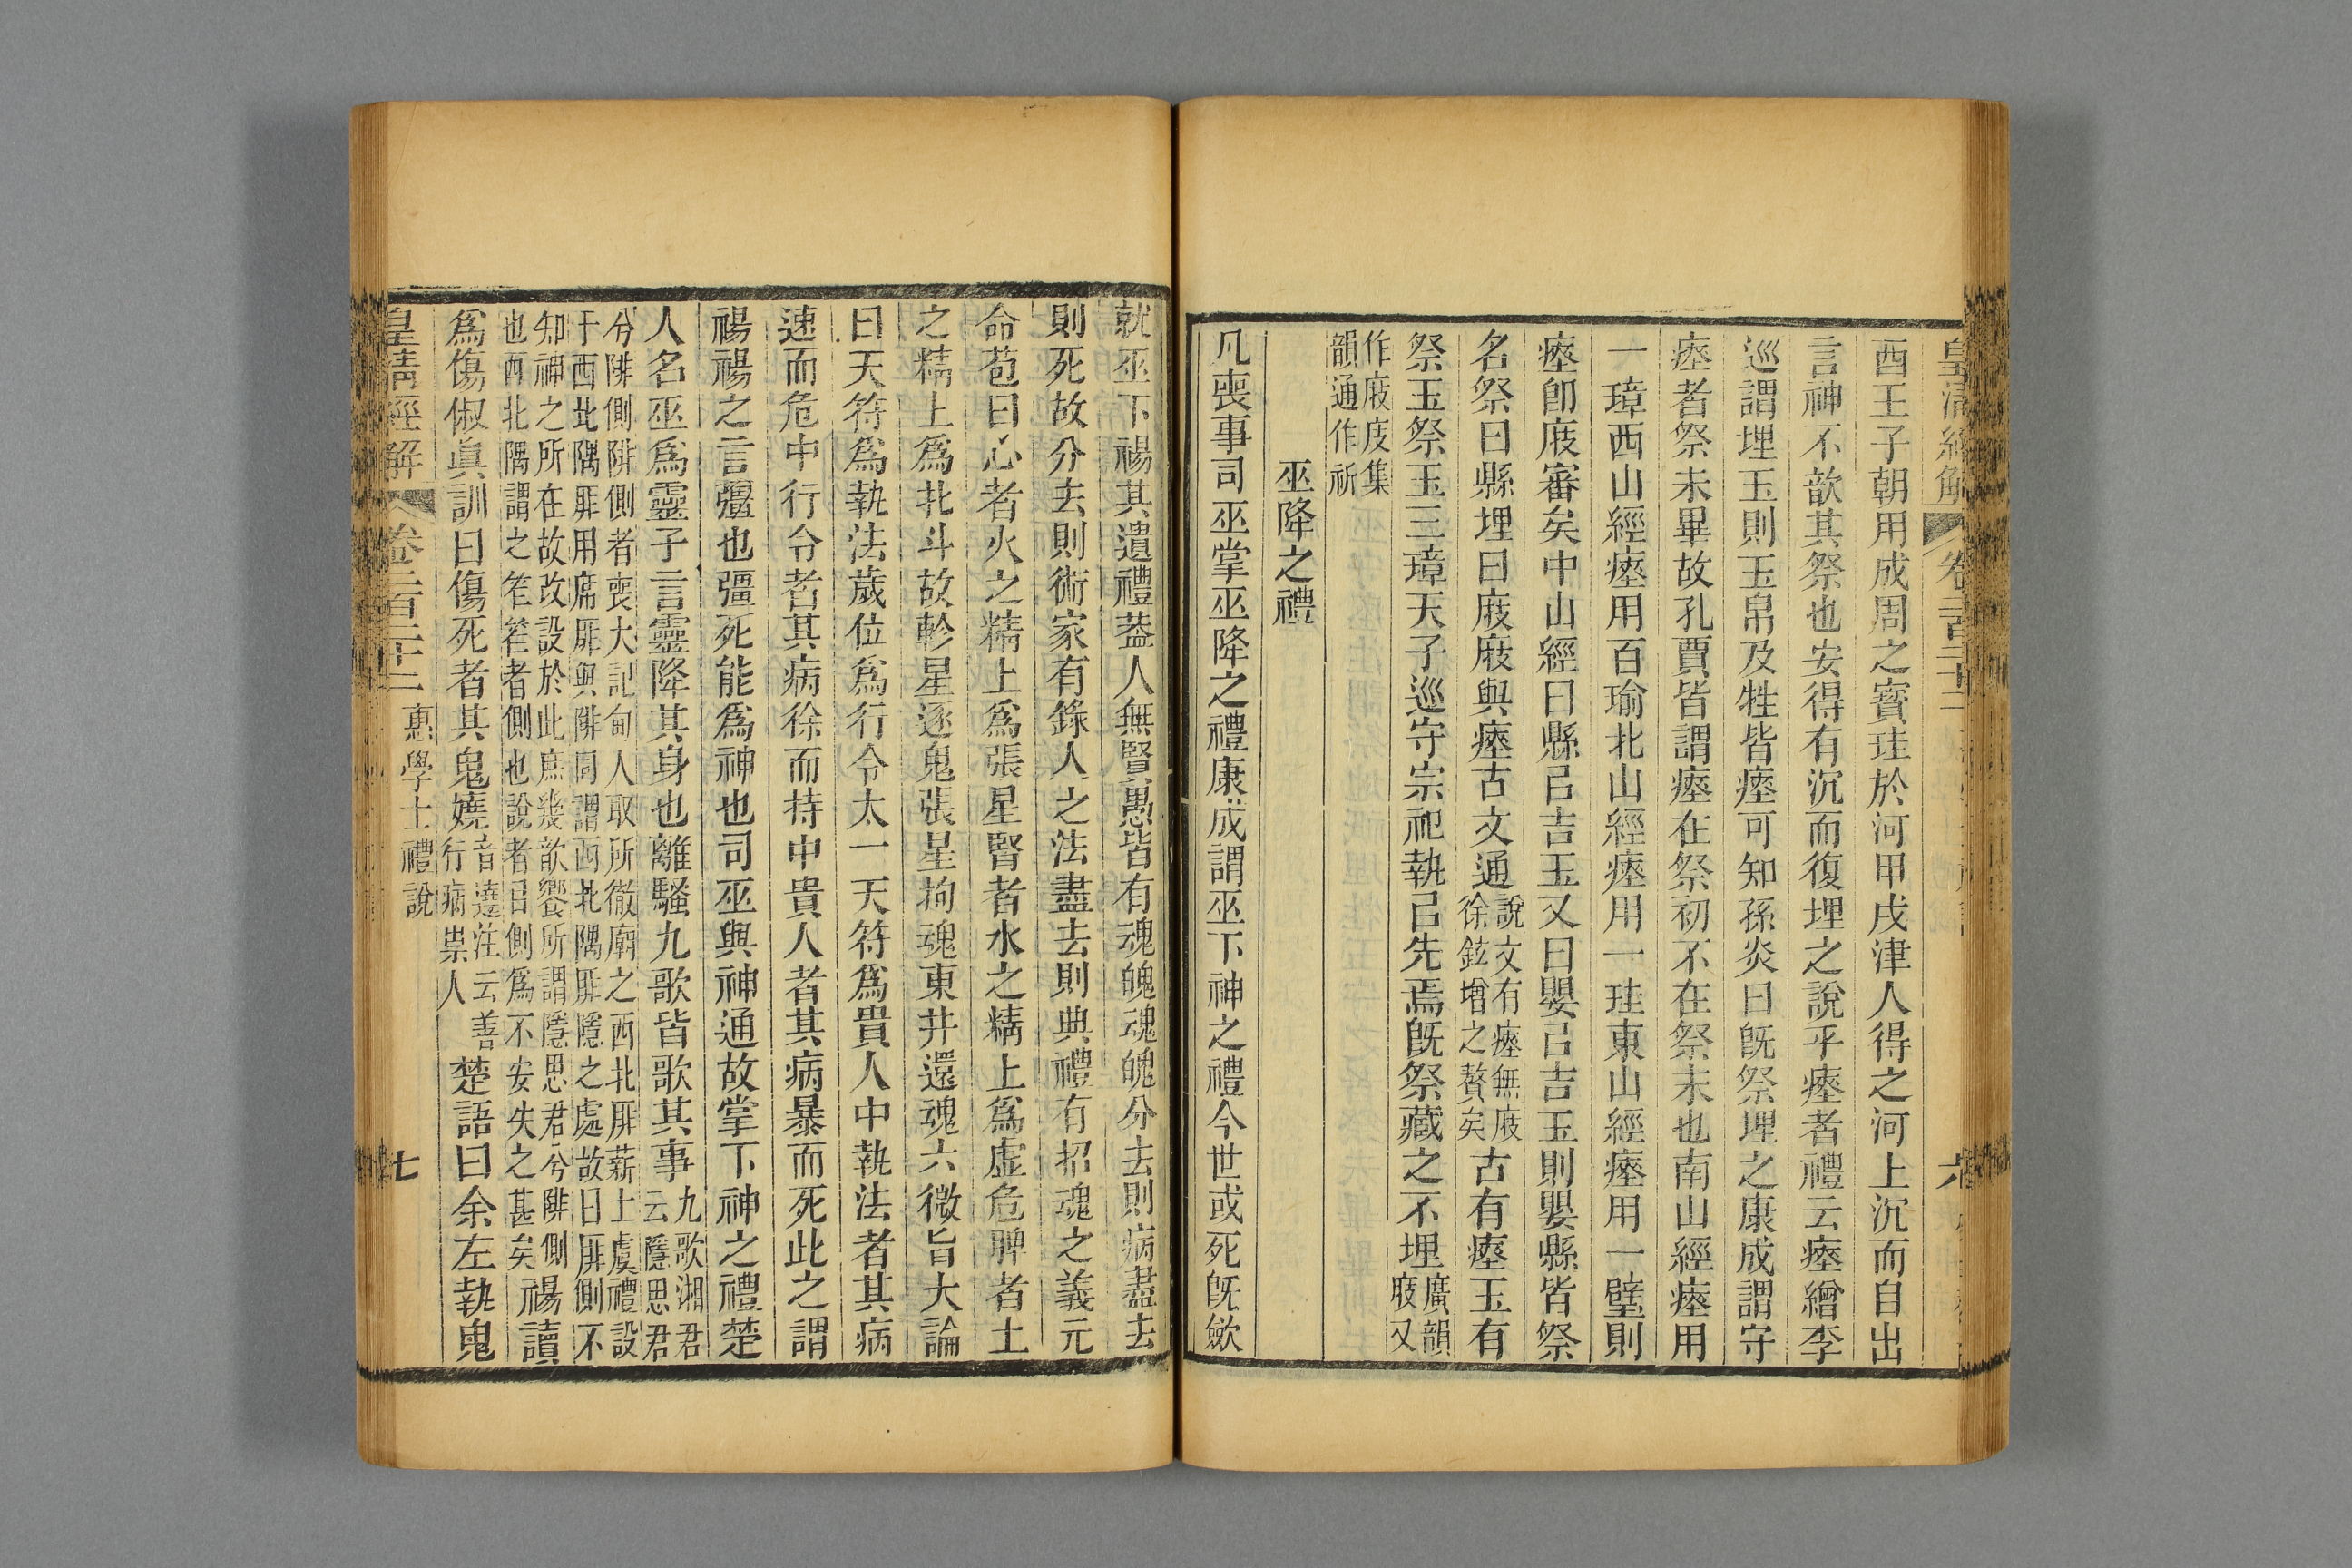 酉王子朝用成周之寶珪於河甲戌津人得之河上沉而自出
言神不歆其祭也安得有沉而復埋之說乎瘞者禮云瘞繒李
巡謂埋玉則玉帛及牲皆瘞可知孫炎曰旣祭埋之康成謂守
瘞者祭未畢故孔賈皆謂瘞在祭初不在祭末也南山經瘞用
一璋西山經瘞用百瑜北山經瘞用一珪東山經瘞用一璧則
瘞卽庪審矣中山經曰縣㠯吉玉又曰嬰㠯吉玉則嬰縣皆祭
名祭曰縣埋曰庪庪與瘞古文通說文有瘞無庪徐鉉增之贅矣古有瘞玉有
祭玉祭玉三璋天子巡守宗祀執㠯先焉旣祭藏之不埋廣韻庪又
作庪庋集韻通作祈
巫降之禮
凡喪事司巫掌巫降之禮康成謂巫下神之禮今世或死旣斂
就巫下禓其遺禮葢人無賢愚皆有魂魄魂魄分去則病盡去
則死故分去則術家有錄人之法盡去則典禮有招魂之義元
命苞曰心者火之精上爲張星腎者水之精上爲虛危脾者土
之精上爲北斗故軫星逐鬼張星拘魂東井還魂六微旨大論
曰天符爲執法歲位爲行令太一天符爲貴人中執法者其病
速而危中行令者其病徐而持中貴人者其病暴而死此之謂
禓禓之言彊也彊死能爲神也司巫與神通故掌下神之禮楚
人名巫爲靈子言靈降其身也離騷九歌皆歌其事九歌湘君云隱思君
兮陫側陫側者喪大記甸人取所徹廟之西北厞薪士虞禮設
于西北隅厞用席厞與陫同謂西北隅厞隱之處故曰厞側不
知神之所在故改設於此庶幾歆饗所謂隱思君兮陫側
也西北隅謂之笮笮者側也說者㠯側爲不安失之甚矣禓讀
爲傷俶眞訓曰傷死者其鬼嬈音遶注云善行病祟人楚語曰余左執鬼
皇清經解 卷二百二十二 惠學士禮說 七